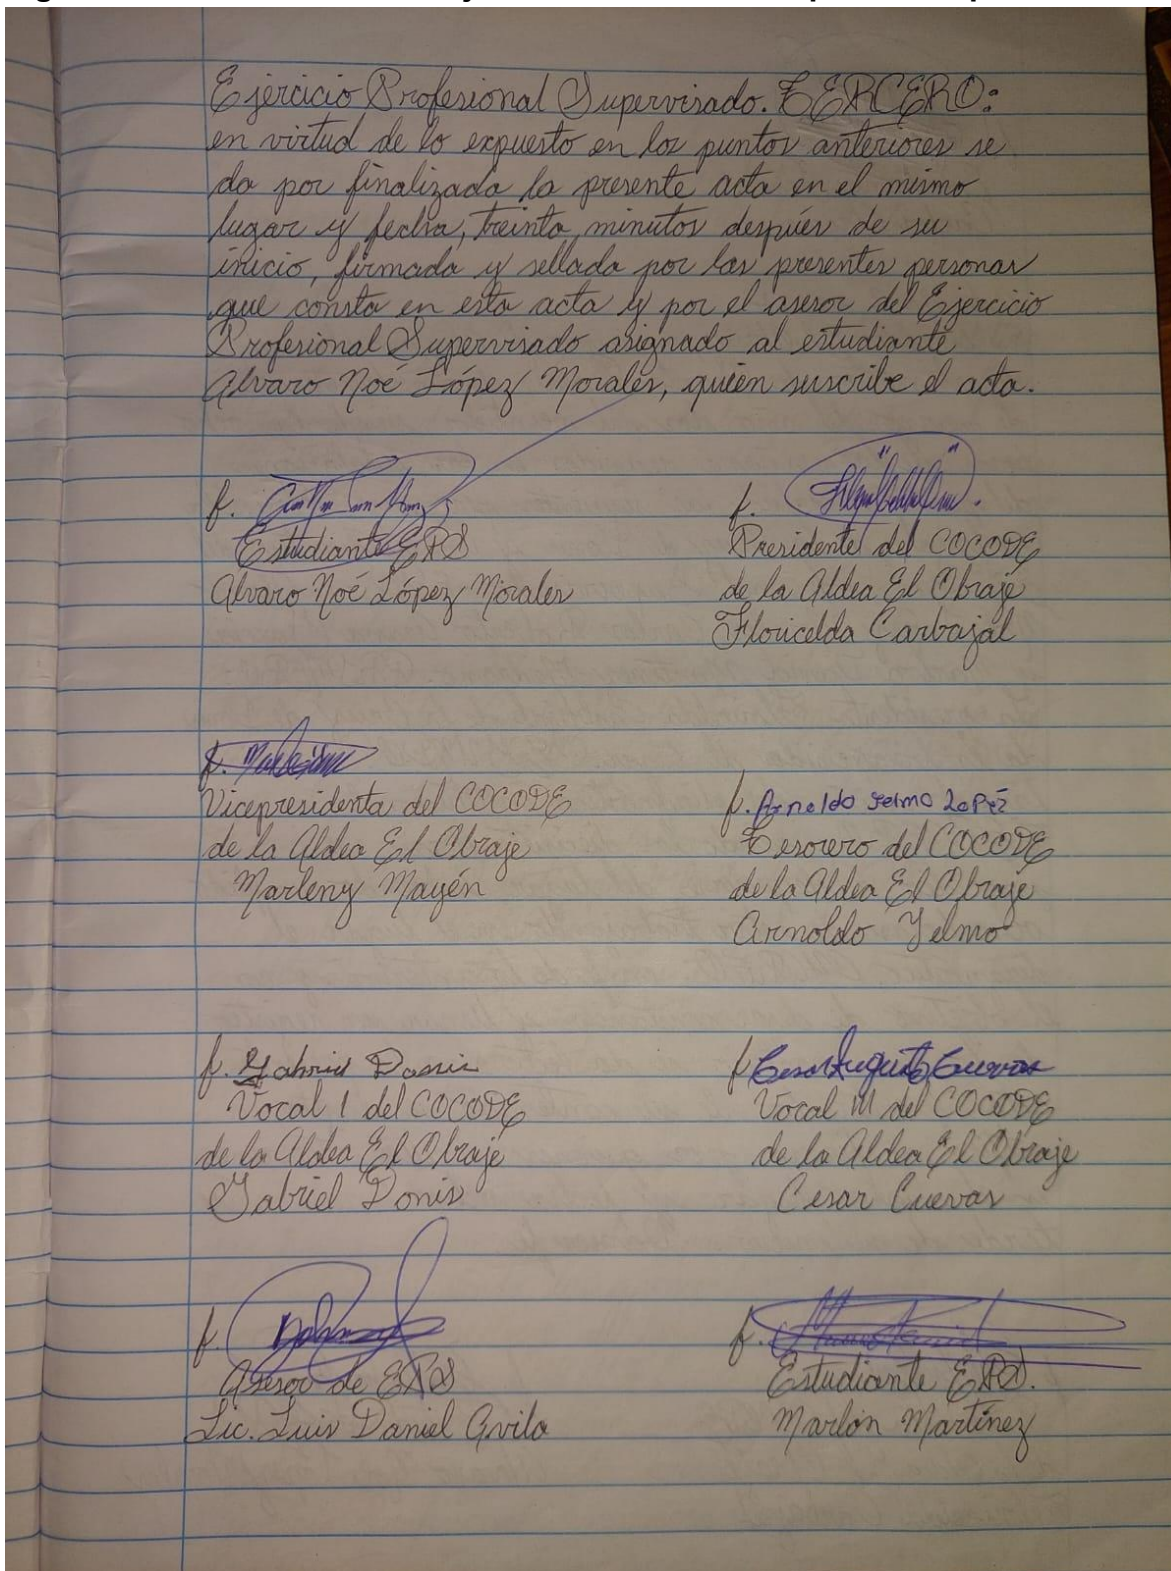 Ejercicio Profesional Supervisado. TERCERO:
en virtud de lo expuesto en los puntos anteriores se
da por finalizada la presente acta en el mismo
lugar y fecha, treinta minutos después de su
inicio, firmada y sellada por las presentes personas
que consta en esta acta y por el asesor del Ejercicio
Profesional Supervisado asignado al estudiante
Alvaro Noé López Morales, quien suscribe el acta.
f.
Estudiante EPS
Alvaro Noé López Morales
f.
Presidente del COCODE
de la Aldea El Obraje
Floricelda Carbajal
f.
Vicepresidenta del COCODE
de la Aldea El Obraje
Marleny Mayén
f. Arnoldo Yelmo LoPéz
Tesorero del COCODE
de la Aldea El Obraje
Arnoldo Yelmo
f. Gabriel Donis
Vocal I del COCODE
de la Aldea El Obraje
Gabriel Donis
f. Cesar Augusto Cuevas
Vocal III del COCODE
de la Aldea El Obraje
Cesar Cuevas
f.
Asesor de EPS
Lic. Luis Daniel Avila
f.
Estudiante EPS.
Marlon Martínez